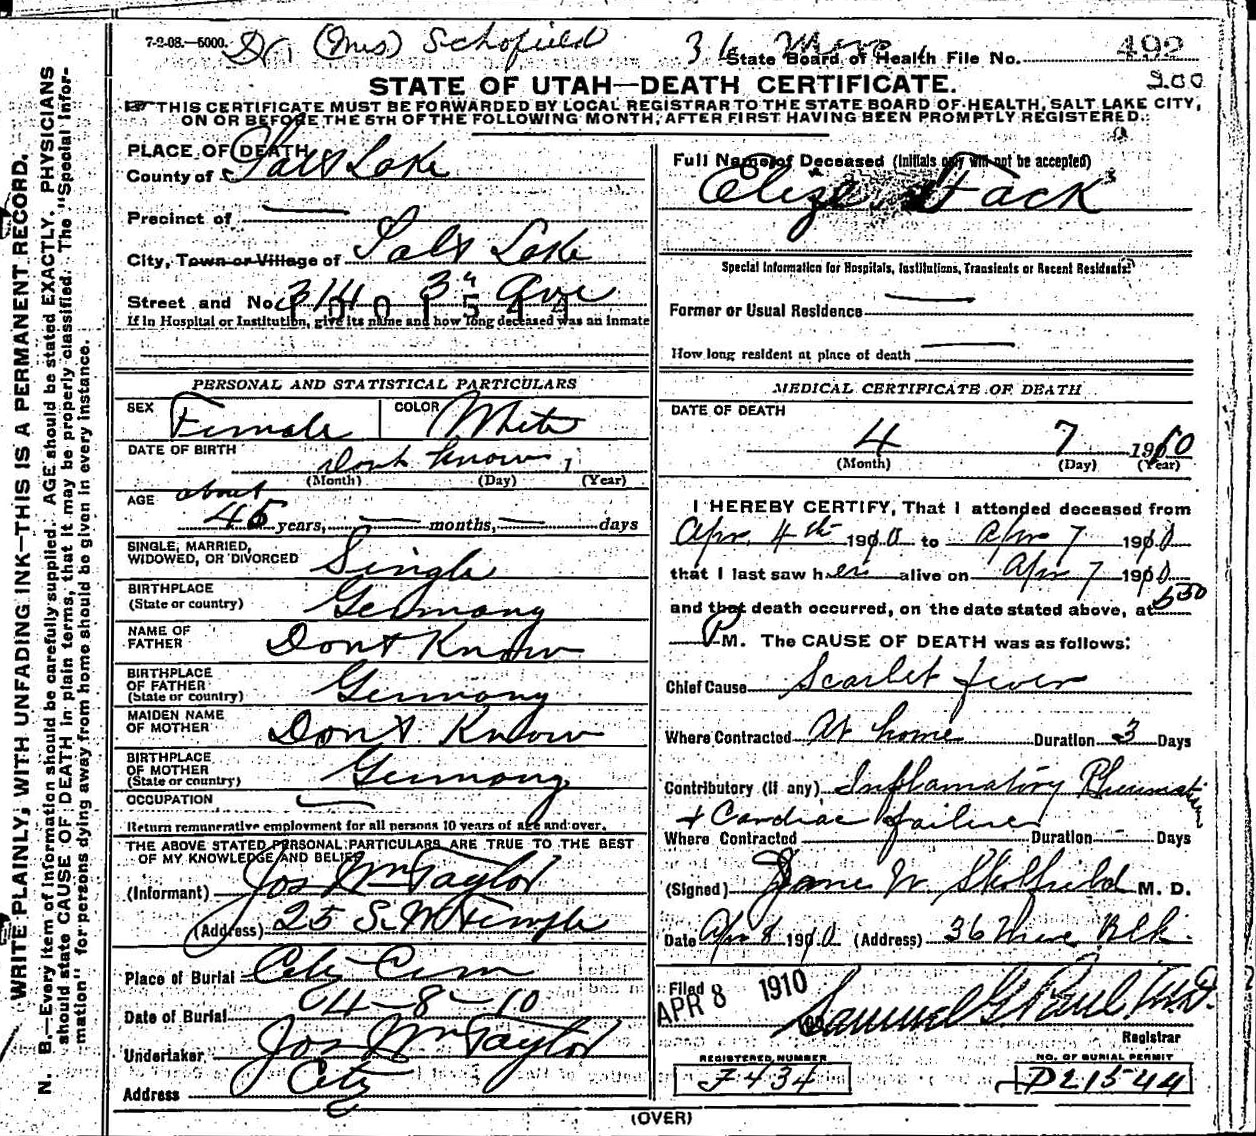 7-2-08.—5000. Dr (Mrs) Schofield 36
State Board of Health File No. 492
200
STATE OF UTAH—DEATH CERTIFICATE.
THIS CERTIFICATE MUST BE FORWARDED BY LOCAL REGISTRAR TO THE STATE BOARD OF HEALTH, SALT LAKE CITY,
ON OR BEFORE THE 5TH OF THE FOLLOWING MONTH, AFTER FIRST HAVING BEEN PROMPTLY REGISTERED.
WRITE PLAINLY, WITH UNFADING INK—THIS IS A PERMANENT RECORD.
N. B.—Every item of information should be carefully supplied. AGE should be stated EXACTLY. PHYSICIANS
should state CAUSE OF DEATH in plain terms, that it may be properly classified. The "Special Infor-
mation" for persons dying away from home should be given in every instance.
PLACE OF DEATH
County of Salt Lake
Precinct of —
City, Town or Village of Salt Lake
Street and No. 314 3" Ave
If in Hospital or Institution, give its name and how long deceased was an inmate
PERSONAL AND STATISTICAL PARTICULARS
SEX Female COLOR White
DATE OF BIRTH Dont know 1
(Month) (Day) (Year)
AGE about
45 years, — months, — days
SINGLE, MARRIED,
WIDOWED, OR DIVORCED Single
BIRTHPLACE
(State or country) Germany
NAME OF
FATHER Dont Know
BIRTHPLACE
OF FATHER
(State or country) Germany
MAIDEN NAME
OF MOTHER Dont Know
BIRTHPLACE
OF MOTHER
(State or country) Germany
OCCUPATION —
Return remunerative employment for all persons 10 years of age and over.
THE ABOVE STATED PERSONAL PARTICULARS ARE TRUE TO THE BEST
OF MY KNOWLEDGE AND BELIEF
(Informant) Jos Wm Taylor
(Address) 25 S. W Temple
Place of Burial City Cem
Date of Burial 04-8-10
Undertaker Jos Wm Taylor
Address City
Full Name of Deceased (Initials only will not be accepted)
Eliza Fack
Special Information for Hospitals, Institutions, Transients or Recent Residents:
Former or Usual Residence —
How long resident at place of death —
MEDICAL CERTIFICATE OF DEATH
DATE OF DEATH
4 7 1910
(Month) (Day) (Year)
I HEREBY CERTIFY, That I attended deceased from
Apr. 4th 1910 to Apr 7 1910
that I last saw her alive on Apr 7 1910
and that death occurred, on the date stated above, at 530
P M. The CAUSE OF DEATH was as follows:
Chief Cause Scarlet fever
Where Contracted At home Duration 3 Days
Contributory (if any) Inflamatory Rheumatism
+ Cardiac failure
Where Contracted Duration - Days
(Signed) Jane W. Skolfield M. D.
Date Apr 8 1910 (Address) 36 Blk.
Filed
APR 8 1910
Samuel G. Paul M.D.
Registrar
REGISTERED NUMBER
F434
NO. OF BURIAL PERMIT
D21544
(OVER)